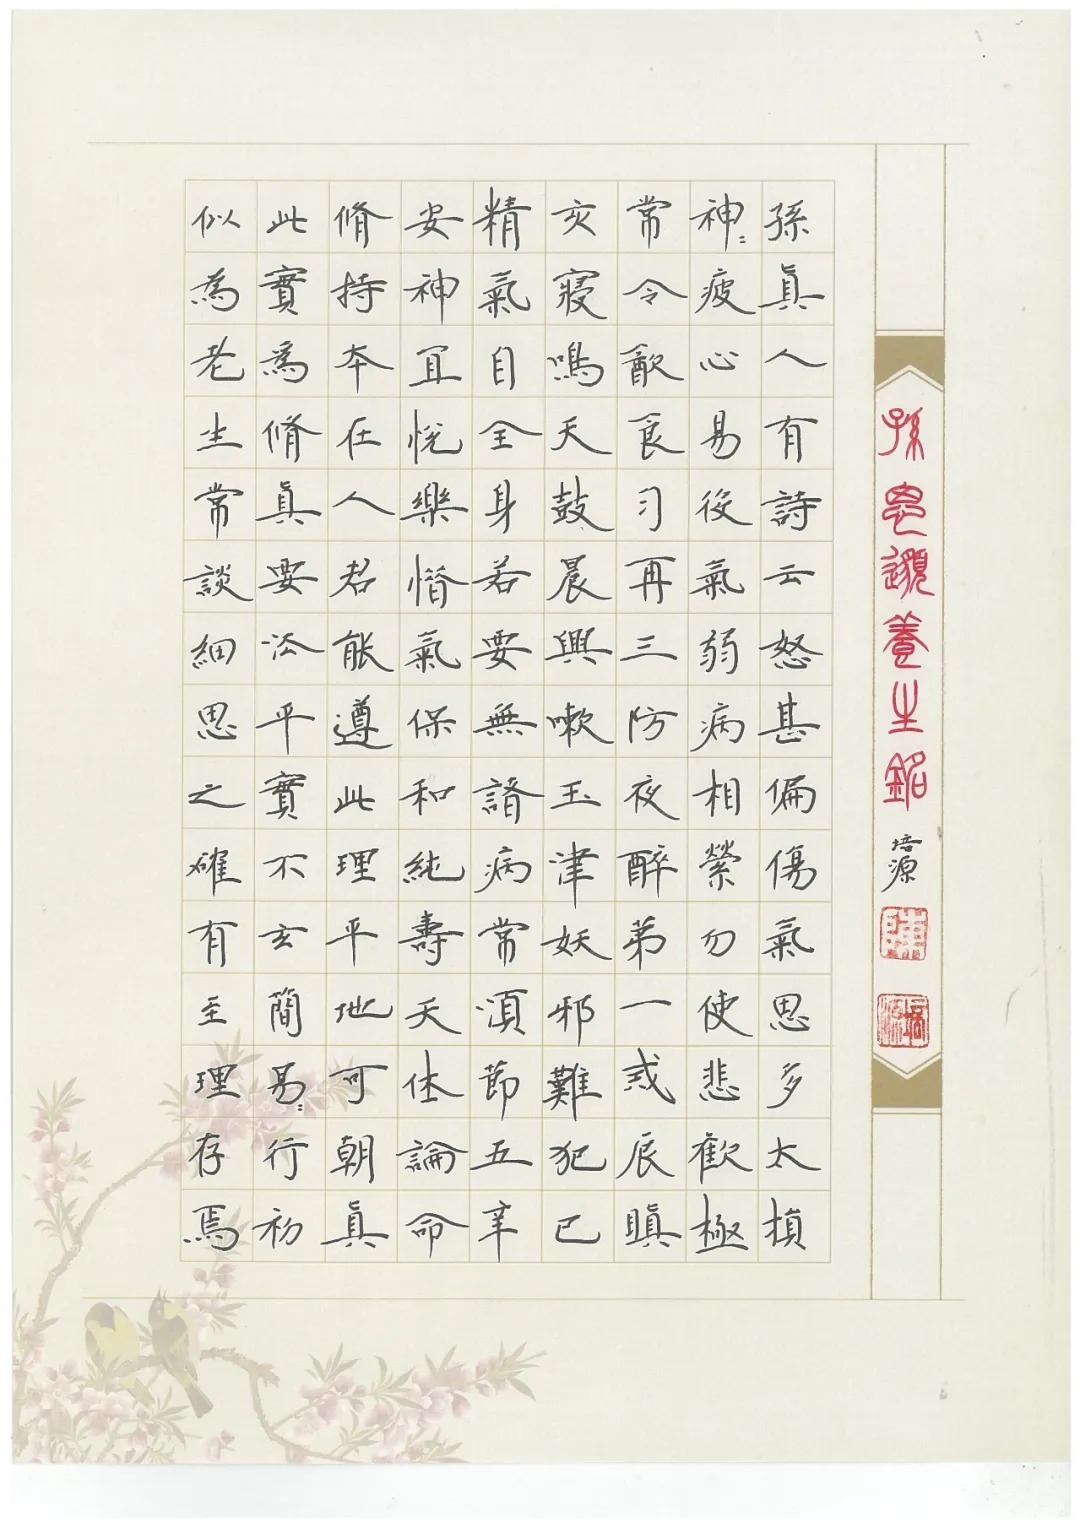 孫思邈養生銘 培源
陳
培源
孫真人有詩云怒甚偏傷氣思多太損
神=疲心易役氣弱病相縈勿使悲歡極
常令飲食勻再三防夜醉弟一戒辰瞋
亥寢鳴天鼓晨興嗽玉津妖邪難犯己
精氣自全身若要無諸病常須節五辛
安神宜悅樂惜氣保和純壽夭休論命
脩持本在人君能遵此理平地可朝真
此實為脩真要法平實不玄簡易=行初
似為老生常談細思之確有至理存焉